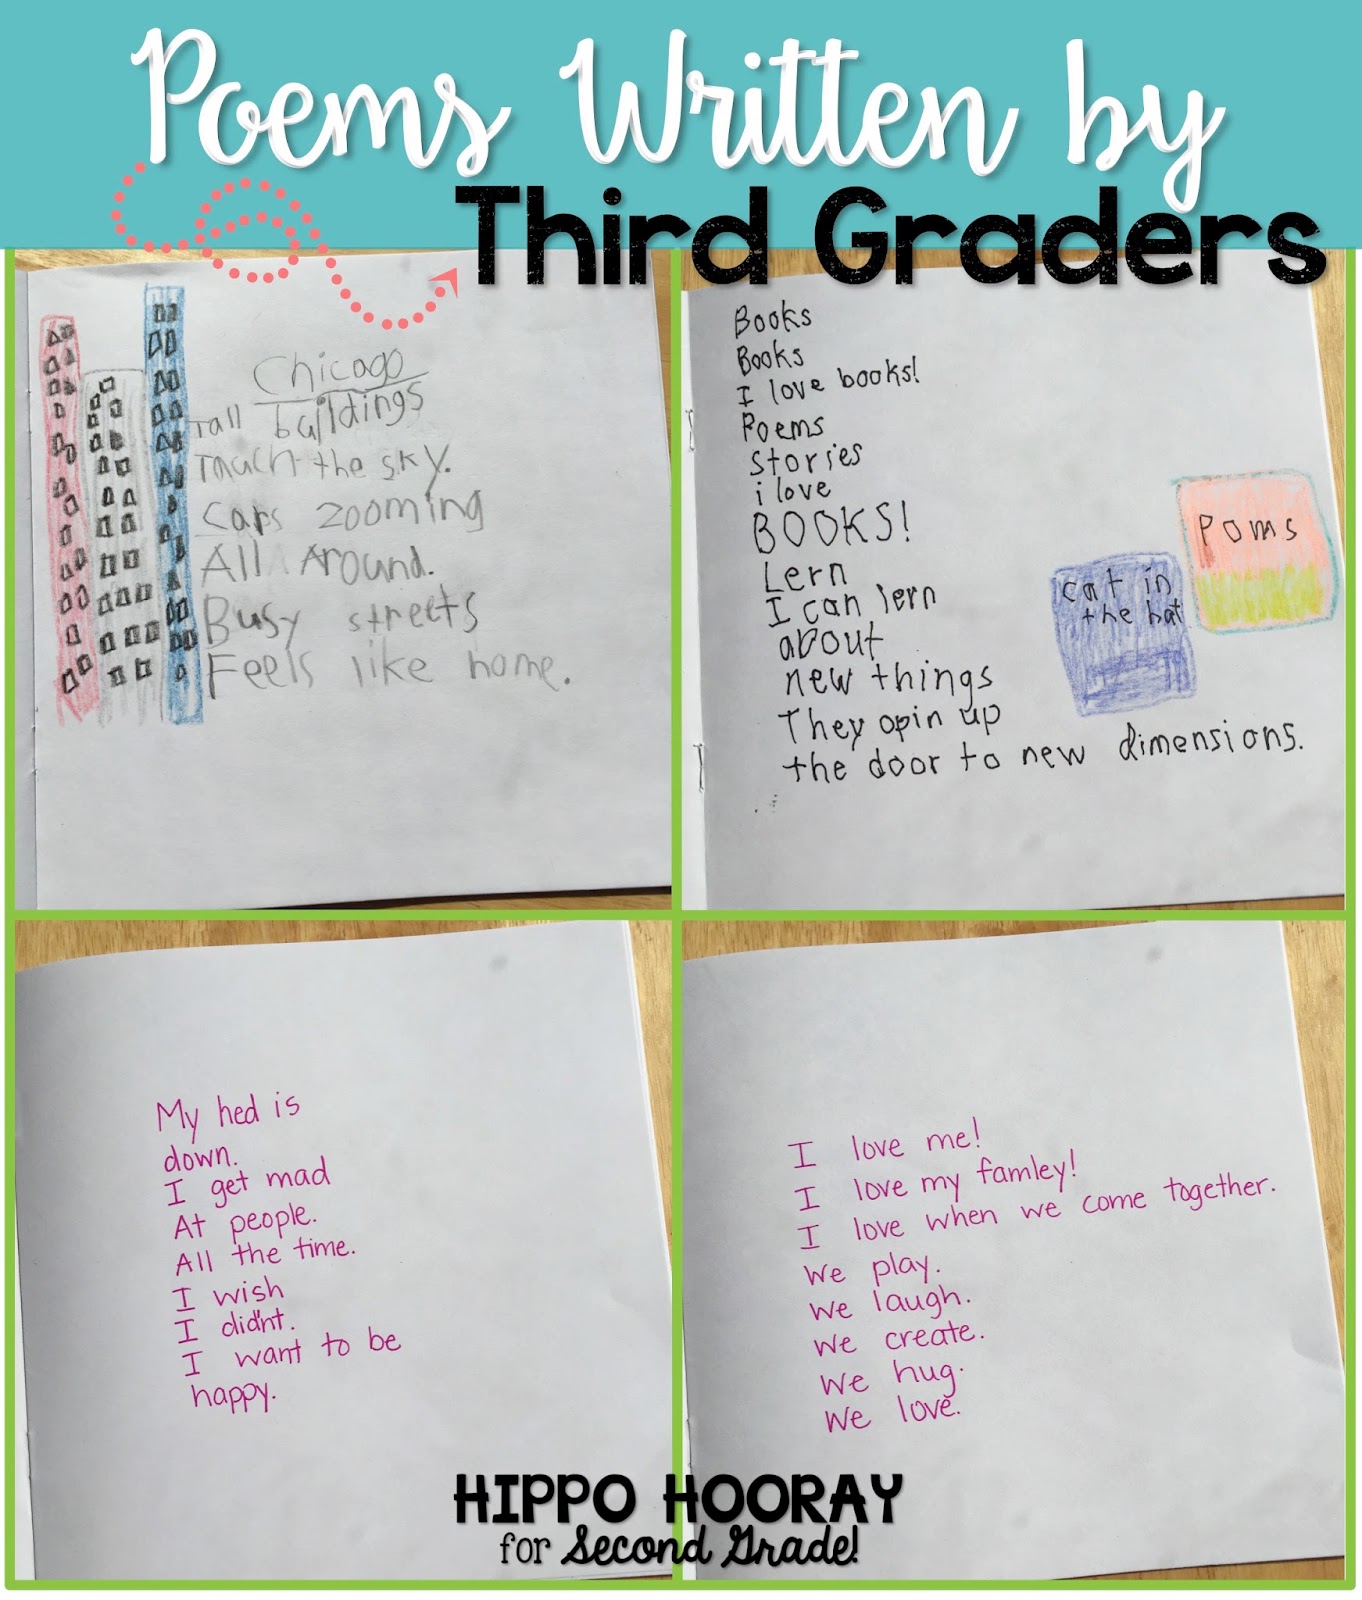 Poems Written by
Third Graders
Chicago
Tall buildings
Touch the sky.
Cars zooming
All Around.
Busy streets
Feels like home.
Books
Books
I love books!
Poems
stories
i love
BOOKS!
Lern
I can lern
about
new things
They opin up
the door to new dimensions.
Poms
cat in
the hat
My hed is
down.
I get mad
At people.
All the time.
I wish
I did'nt.
I want to be
happy.
I love me!
I love my famley!
I love when we come together.
We play.
We laugh.
We create.
We hug.
We love.
HIPPO HOORAY
for Second Grade!